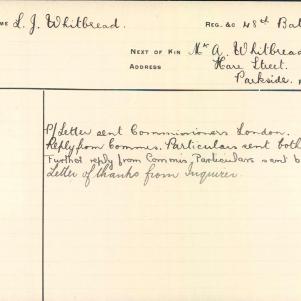 ME L. J. Whitbread. REG. &C 48th Bat
NEXT OF KIN Mr A. Whitbread
ADDRESS Hare Street.
Parkside.
P/Letter sent Commissioners London.
Reply from Commrs. Particulars sent both
Further reply from Commrs. Particulars sent b
Letter of thanks from Inquirer